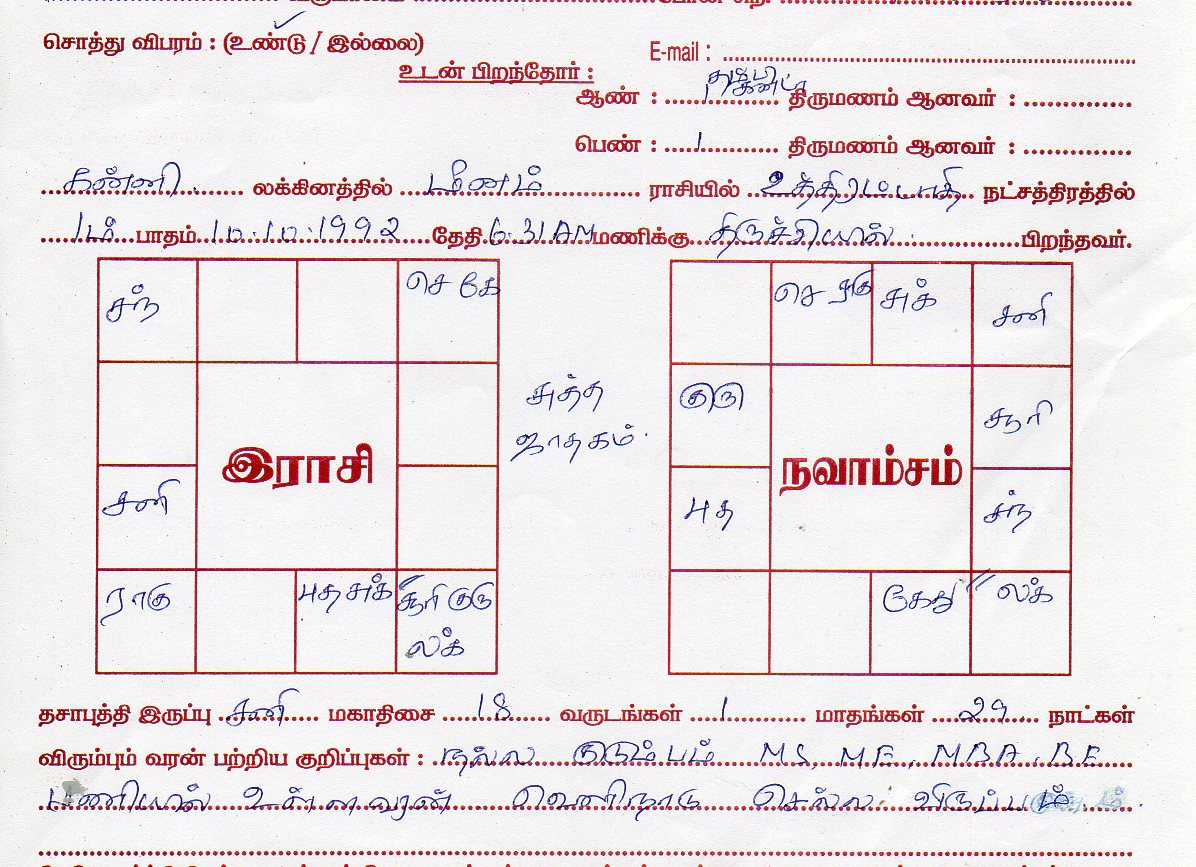 சொத்து விபரம் : (உண்டு / இல்லை)
E-mail :
உடன் பிறந்தோர் :
ஆண் : திருமணம் ஆனவர் :
பெண் : 1 திருமணம் ஆனவர் :
கன்னி லக்கினத்தில் மீனம் ராசியில் உத்திரட்டாதி நட்சத்திரத்தில்
1ம் பாதம் 10.10.1992 தேதி 6.31 AM மணிக்கு திருச்சியில் பிறந்தவர்.
சந்
செ கே
சனி
இராசி
ராகு
புத சுக்
சூரி குரு
லக்
சுத்த
ஜாதகம்.
செ ராகு
சுக்
சனி
குரு
சூரி
நவாம்சம்
புத
சந்
கேது
லக்
தசாபுத்தி இருப்பு சனி மகாதிசை 18 வருடங்கள் 1 மாதங்கள் 29 நாட்கள்
விரும்பும் வரன் பற்றிய குறிப்புகள் : நல்ல குடும்பம் MS, ME, MBA, BE
பணியில் உள்ளவரன் வெளிநாடு செல்ல விருப்பம்.